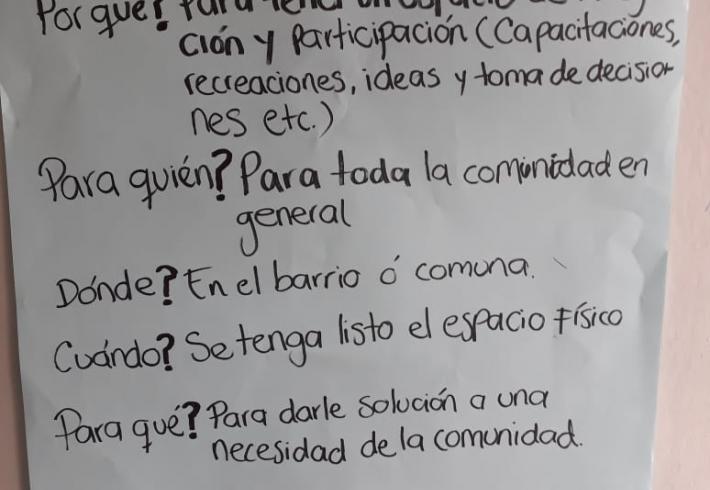 Por que? Para tener un espacio de
ción y Participación (Capacitaciones,
recreaciones, ideas y toma de decisio
nes etc.)
Para quién? Para toda la comunidad en
general
Dónde? En el barrio ó comuna.
Cuándo? Se tenga listo el espacio físico
Para qué? Para darle solución a una
necesidad de la comunidad.